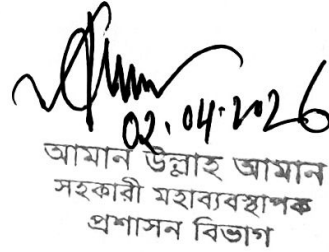 02.04.2026
আমান উল্লাহ আমান
সহকারী মহাব্যবস্থাপক
প্রশাসন বিভাগ